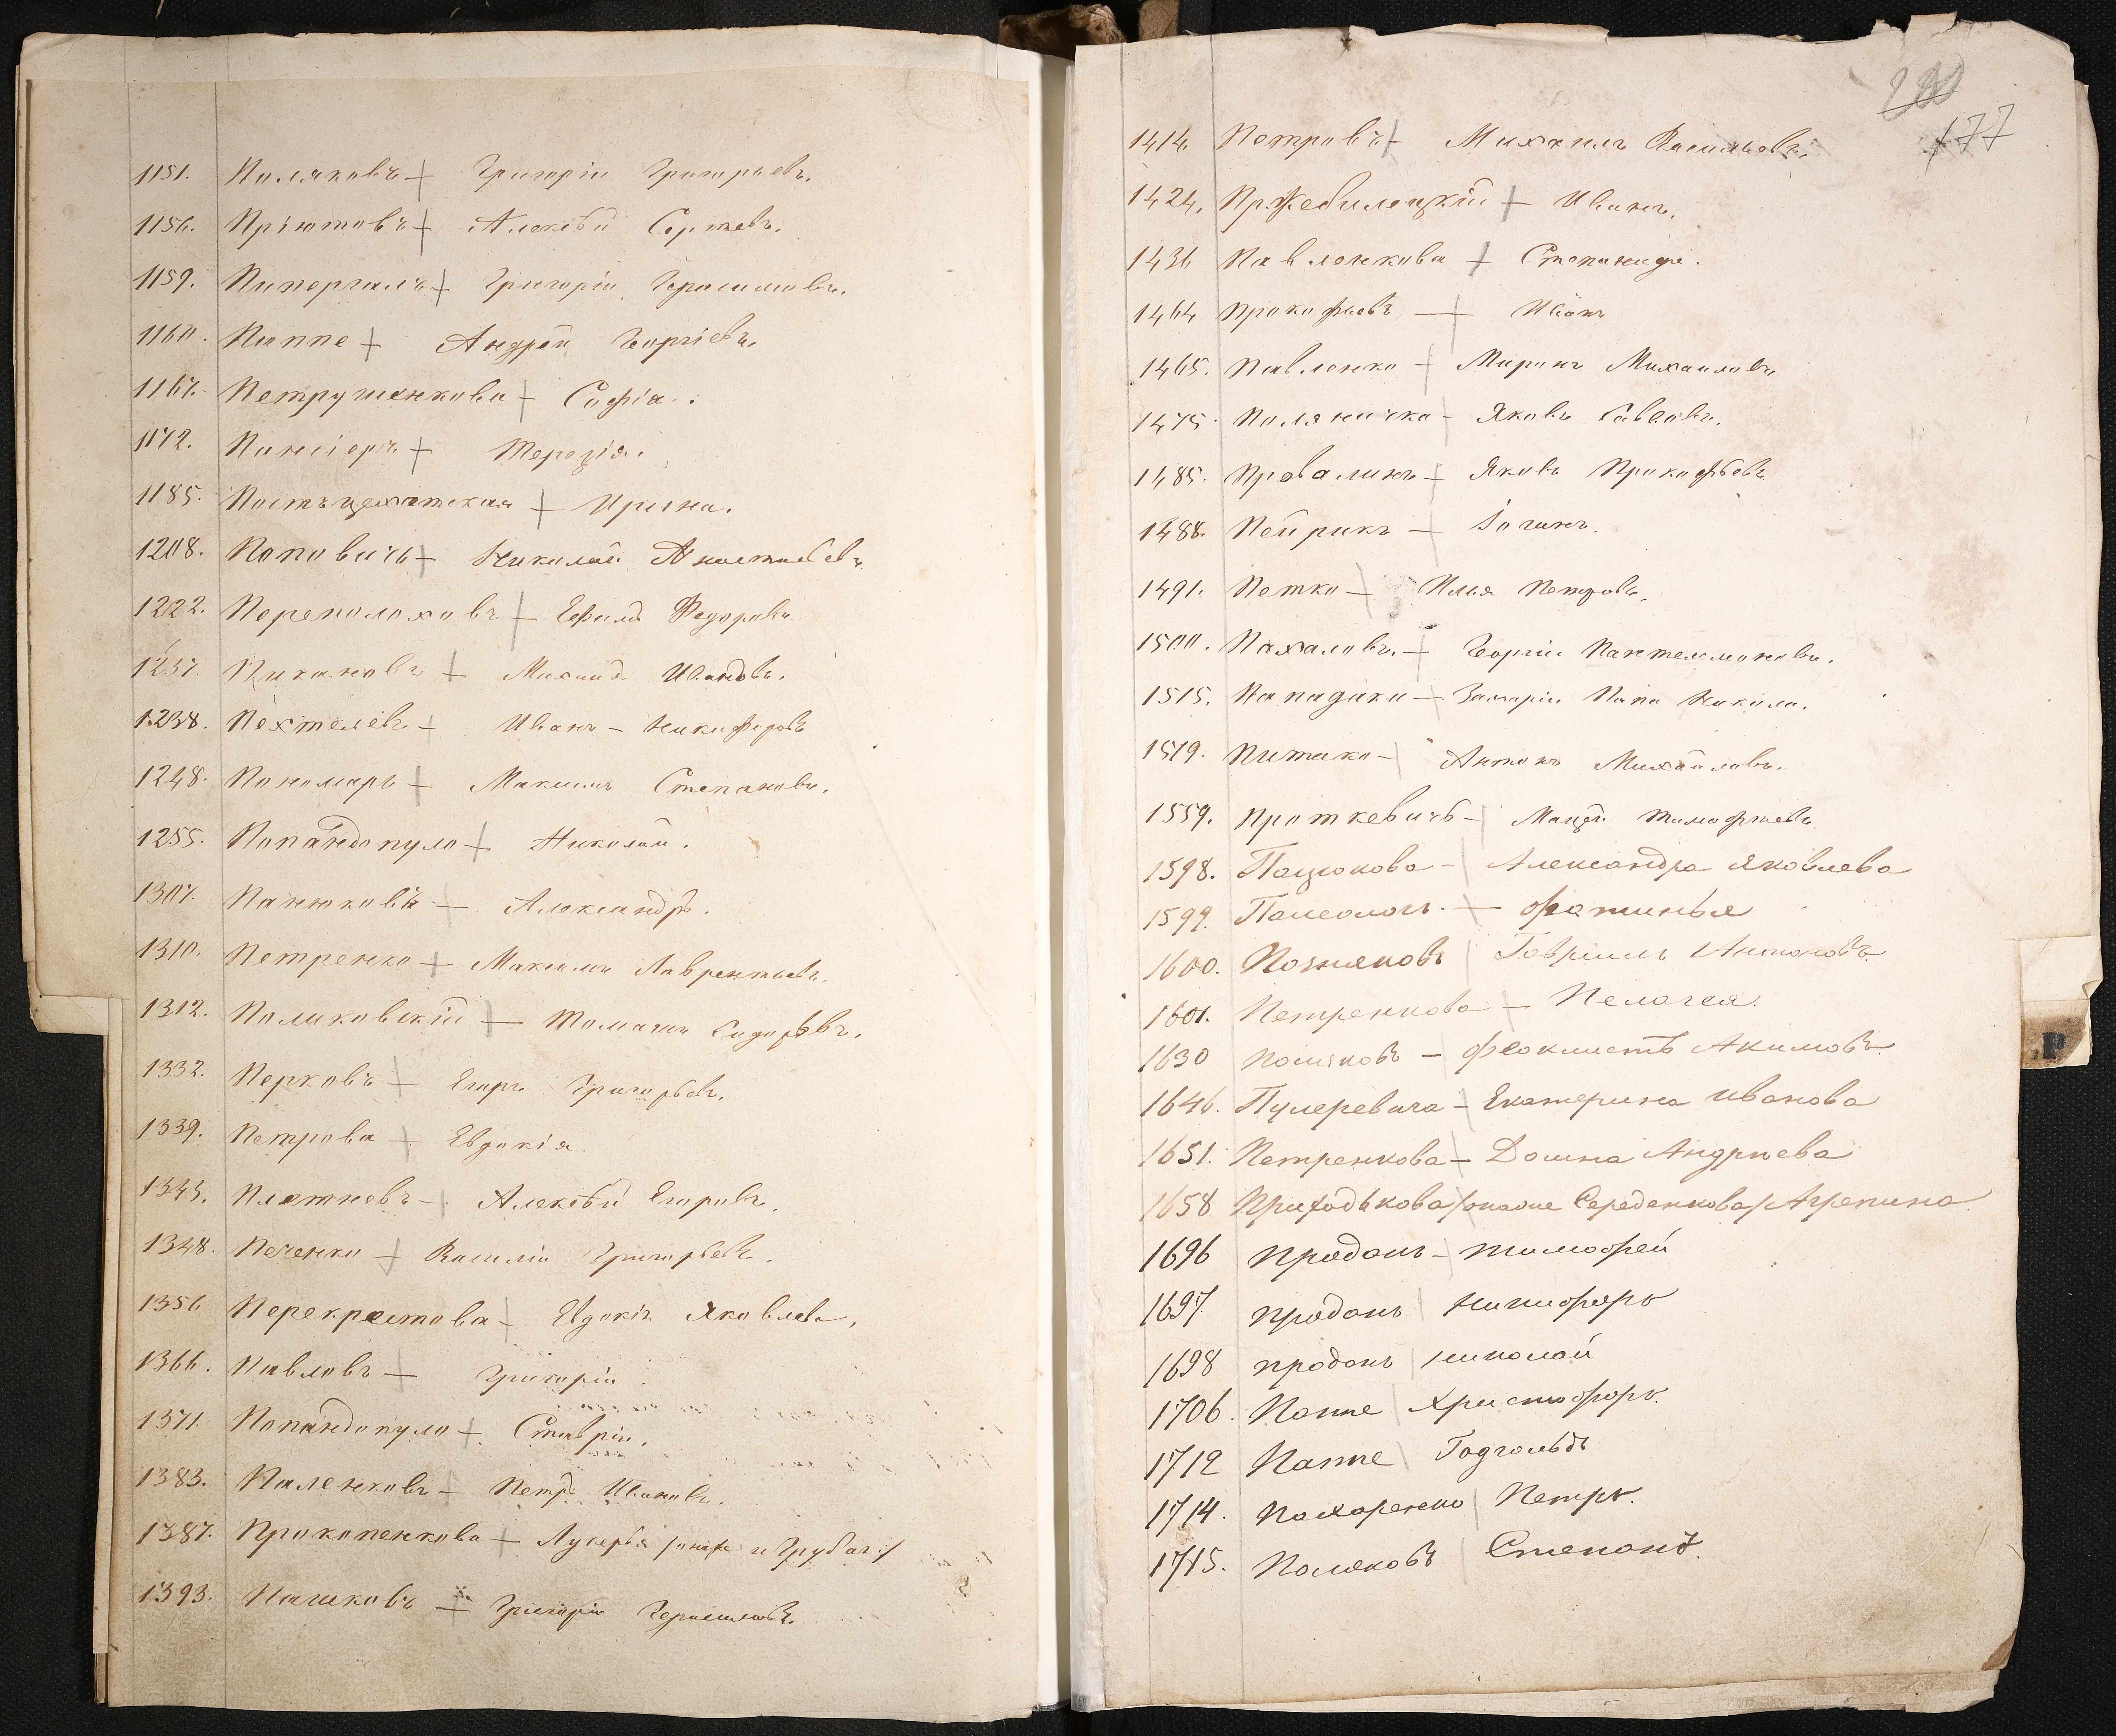 1151. Поляковъ – Григорій Григорьевъ.
1156. Пріютовъ – Алексѣй Сергѣевъ.
1159. Григорій Герасимовъ.
1160. Паппе – Андрей Георгіевъ.
1167. Петрушенкова – Софія.
1172. Терезія.
1185. Ирина.
1208. Поповичъ – Николай
1222. Переполоховъ – Ефимъ Федоровъ
1237. Михаилъ Ивановъ.
1238. Пехтелевъ – Иванъ – Никифоровъ
1248. Пономарь – Максимъ Степановъ.
1255. Попандопуло – Николай.
1307. Панюковъ – Александръ.
1310. Петренко – Максимъ Лаврентьевъ.
1312. Поликовскій –
1332. Перковъ – Егоръ Григорьевъ.
1339. Петрова – Евдокія.
1343. Плетневъ – Алексѣй Егоровъ.
1348. Печенко – Василій Григорьевъ.
1356 Перекрестова – Евдокія Яковлева.
1366. Павловъ – Григорій
1371. Попандопуло – Ставрій.
1383. Паленковъ – Петръ Ивановъ.
1387. Прокопенкова – Лукерья /онаже и Грубая:/
1393. Пашковъ – Григорій Герасимовъ.
177
1414. Петровъ – Михаилъ Васильевъ.
1424. Пржебилецкій – Иванъ.
1436 Павленкова – Степанида.
1464 Прокофьевъ – Иванъ
1465. Павленко – Миронъ Михайловъ
1475. Поляничка – Яковъ Савовъ.
1485. Провалинъ – Яковъ Прокофьевъ
1488. Пейрикъ –
1491. Петко – Илья Петровъ.
1500. Пахаловъ – Георгій Пантелемоновъ.
1515. Пападаки – Захарій Папа Никола.
1519. Питако – Антонъ Михайловъ.
1559. Проткевичъ – Тимофѣевъ.
1598. Пацюкова – Александра Яковлева
1599. Фатинья
1600. Позняковъ Гавріилъ Антоновъ
1601. Петренкова – Пелагея.
1630 Поляковъ – Феоклистъ Акимовъ
1646. Пулеревича – Екатерина Иванова
1651. Петренкова – Домна Андреева
1658 Приходькова /онаже Середенкова/ Агрепина
1696 Проданъ – Тимофей
1697 продонъ Никифоръ
1698 продонъ николай
1706. Паппе Христофоръ.
1712 Паппе Годгольдъ
1714. Пахаренко Петръ.
1715. Поляковъ Степанъ.
P